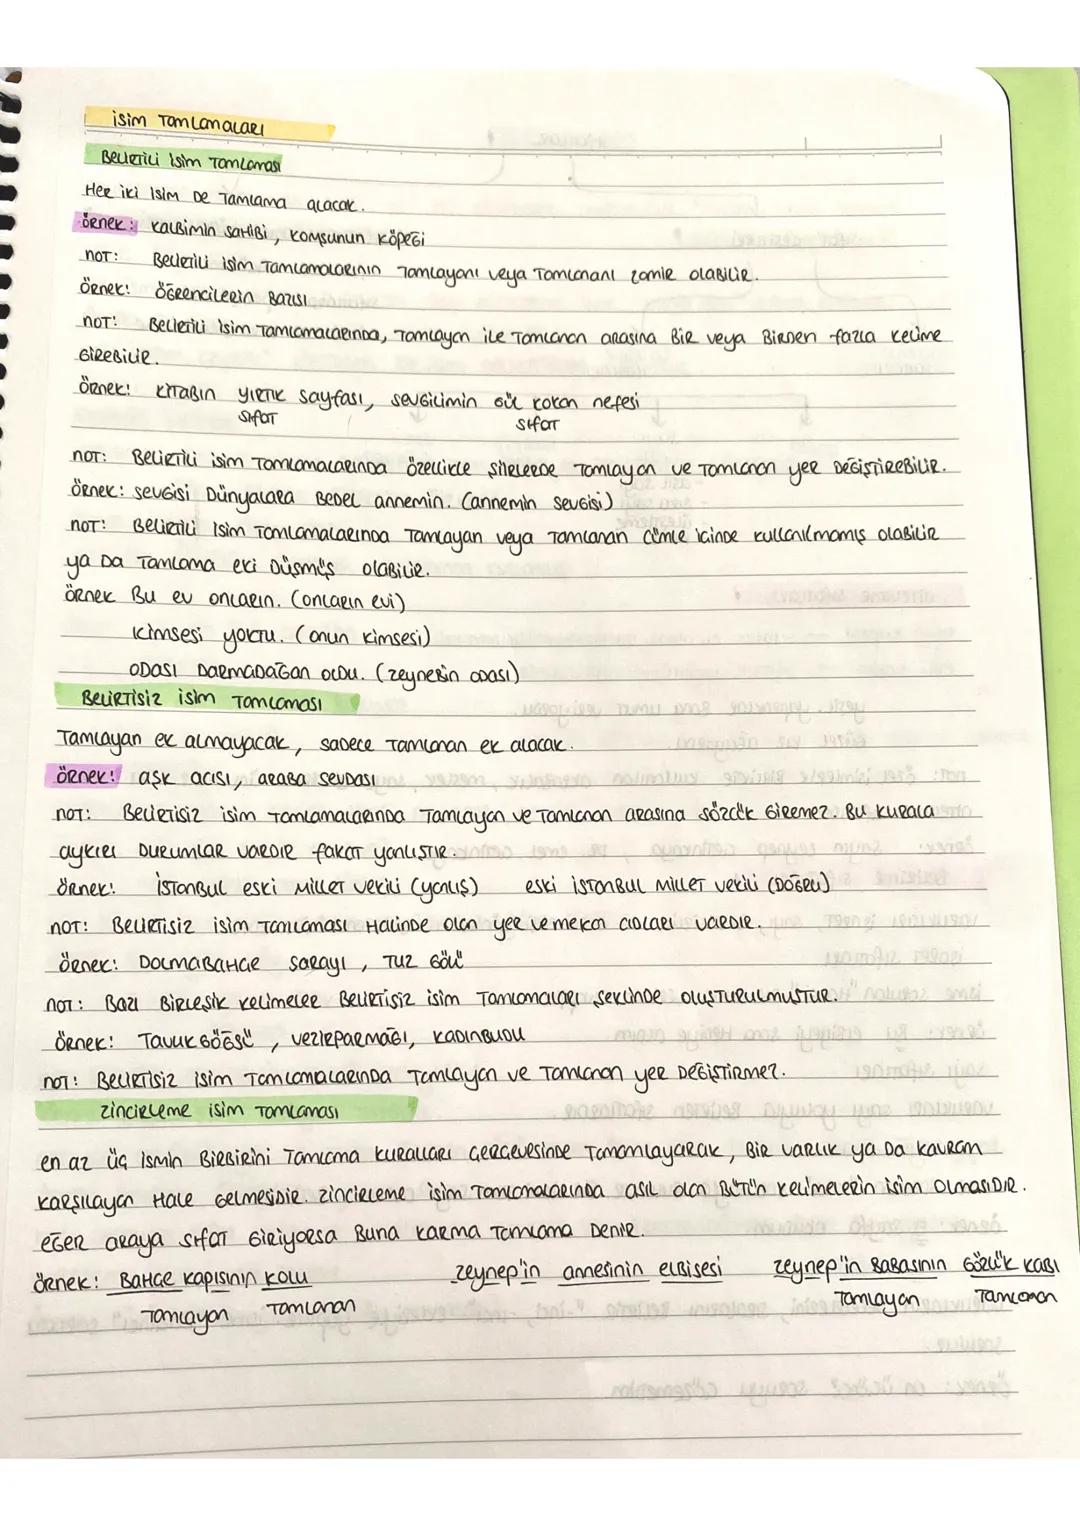 isim Tamlamaları
Belirtili isim Tamlaması
Her iki isim de Tamlama alacak.
örnek: kalbimin sahibi, komşunun köpeği
NOT: Belirtili isim Tamlamalarının Tamlayanı veya Tamlananı zamir olabilir.
Örnek: Öğrencilerin bazısı
NOT: Belirtili isim Tamlamalarında, Tamlayan ile Tamlanan arasına Bir veya Birden fazla kelime
Girebilir.
Örnek: Kitabın yırtık sayfası, sevgilimin gül kokan nefesi
sıfat sıfat
NOT: Belirtili isim Tamlamalarında özellikle şiirlerde Tamlayan ve Tamlanan yer değiştirebilir.
örnek: sevgisi Dünyalara Bedel annemin. (annemin sevgisi)
NOT: Belirtili isim Tamlamalarında Tamlayan veya Tamlanan cümle içinde kullanılmamış olabilir
ya da Tamlama eki düşmüş olabilir.
örnek Bu ev onların. (onların evi)
kimsesi yoktu. (onun kimsesi)
odası darmadağan oldu. (zeynebin odası)
Belirtisiz isim Tamlaması
Tamlayan ek almayacak, sadece Tamlanan ek alacak.
örnek: aşk acısı, araba sevdası
NOT: Belirtisiz isim Tamlamalarında Tamlayan ve Tamlanan arasına sözcük giremez. Bu kurala
aykırı durumlar vardır fakat yanlıştır.
örnek: istanbul eski millet vekili (yanlış) eski istanbul millet vekili (Doğru)
NOT: Belirtisiz isim Tamlaması Halinde olan yer ve mekan adları vardır.
örnek: Dolmabahçe sarayı, Tuz Gölü
NOT: Bazı Birleşik kelimeler Belirtisiz isim Tamlamaları şeklinde oluşturulmuştur.
örnek: Tavukgöğsü, vezirparmağı, kadınbudu
NOT: Belirtisiz isim Tamlamalarında Tamlayan ve Tamlanan yer değiştirmez.
zincirleme isim Tamlaması
en az üç ismin Birbirini Tamlama kuralları çerçevesinde Tamamlayarak, Bir varlık ya da kavram
karşılayan Hale gelmesidir. zincirleme isim Tamlamalarında asıl olan Bütün kelimelerin isim olmasıdır.
eğer araya sıfat giriyorsa Buna karma Tamlama denir.
örnek: Bahçe kapısının kolu zeynep'in annesinin elbisesi zeynep'in Babasının Gözlük kabı
Tamlayan Tamlanan Tamlayan Tamlanan